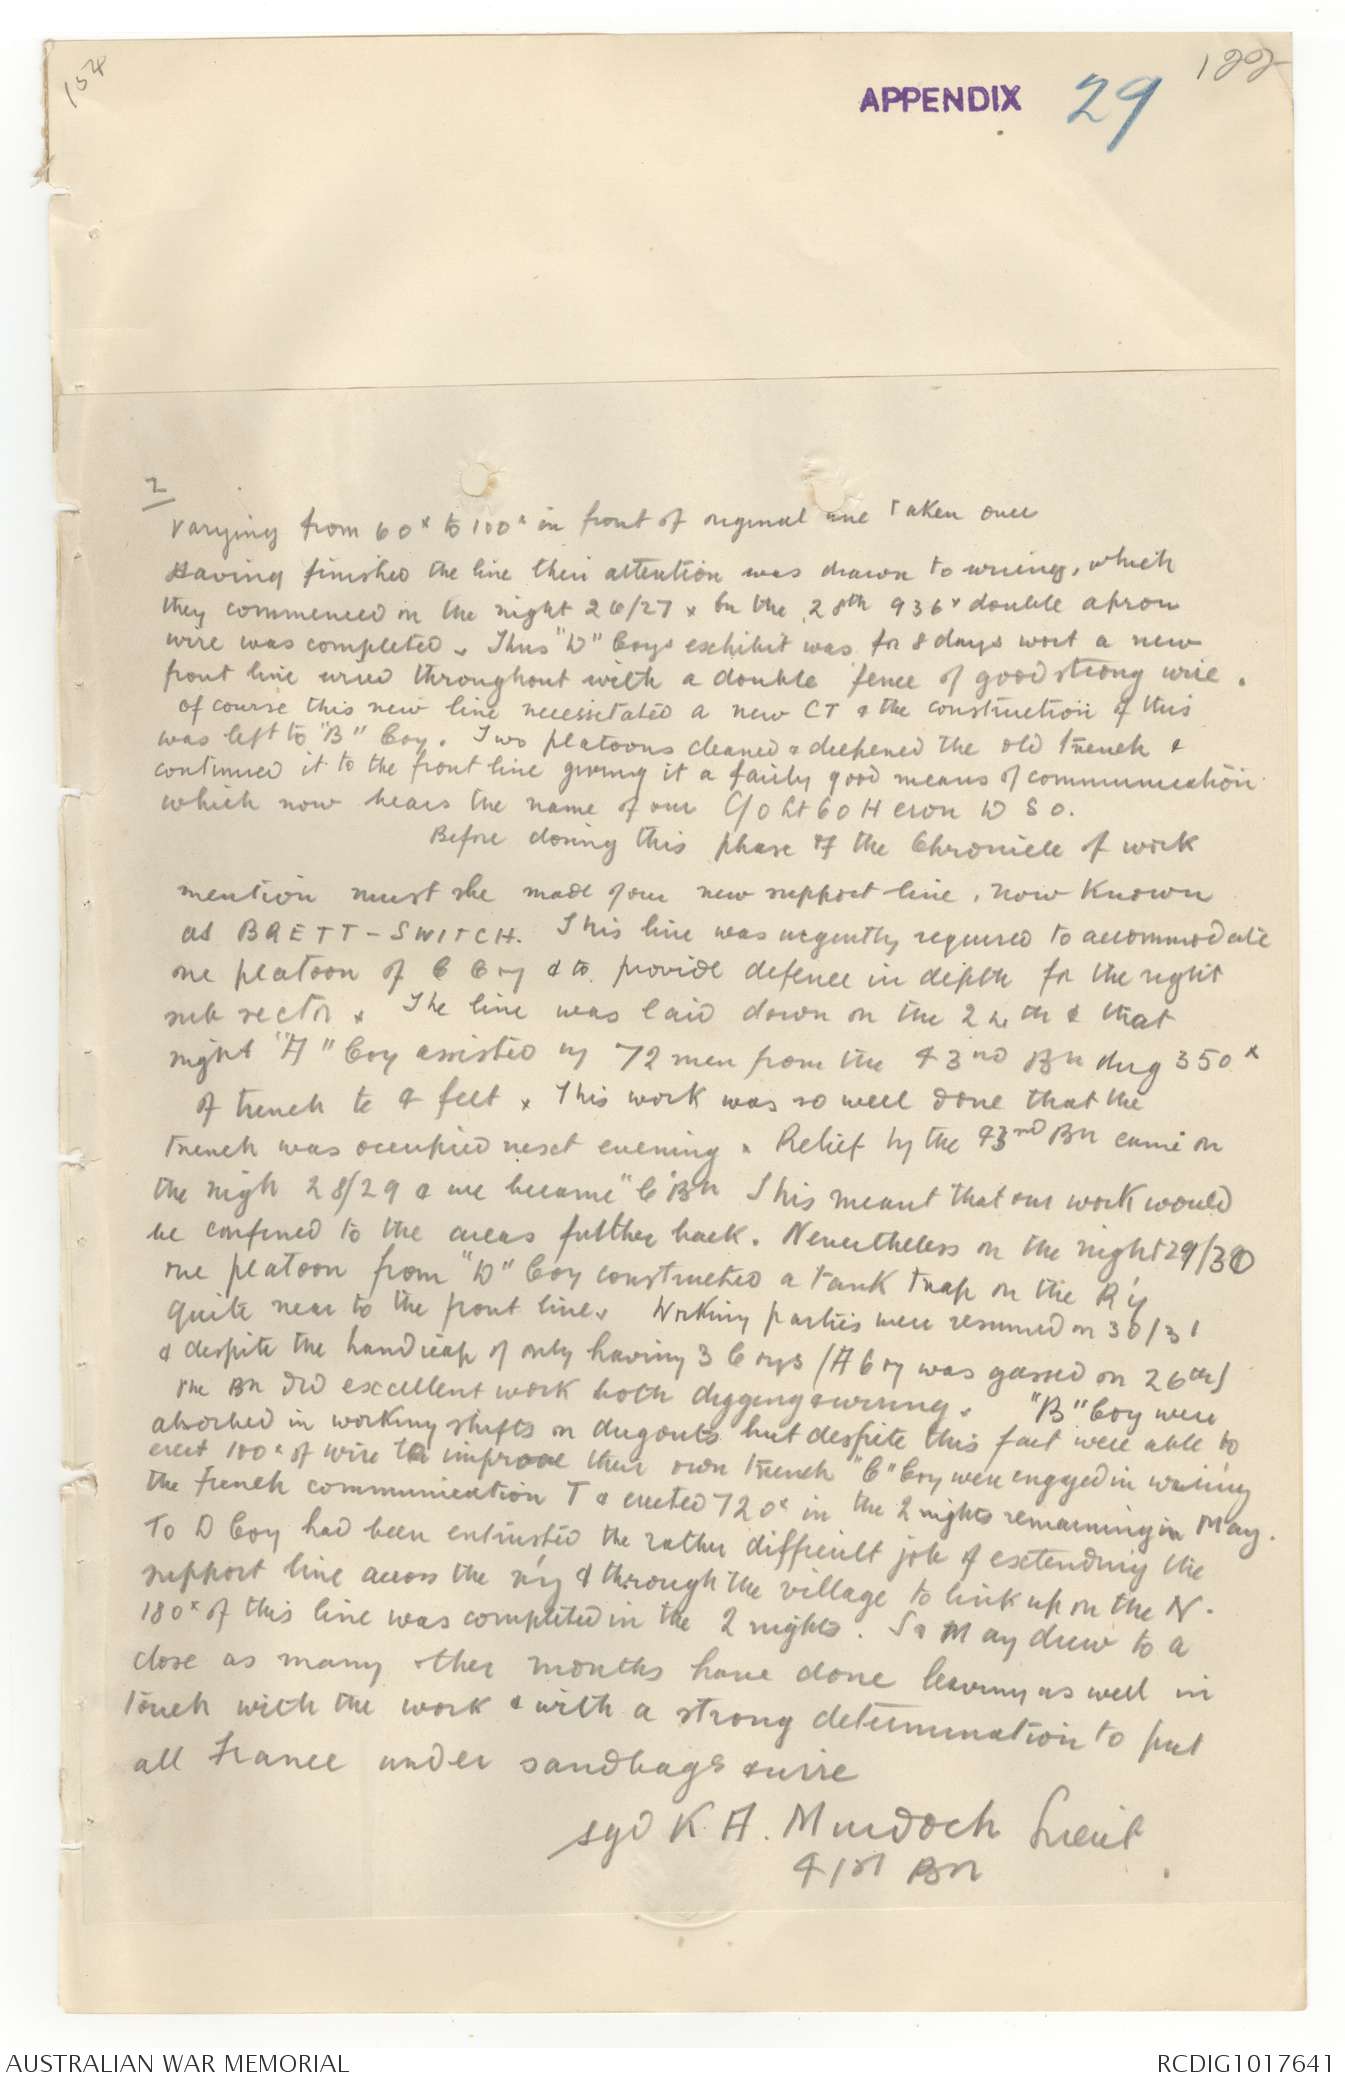 154
APPENDIX 29
122
2
varying from 60x to 100x in front of original line taken over
Having finished the line their attention was drawn to wiring, which
they commenced on the night 26/27 x by the 28th 936x double apron
wire was completed. Thus "D" Coys exhibit was for 8 days work a new
front line wired throughout with a double fence of good strong wire.
Of course this new line necessitated a new CT & the construction of this
was left to "B" Coy. Two platoons cleaned & deepened the old trench &
continued it to the front line giving it a fairly good means of communication
which now bears the name of our C/O Lt Col Heron D S O.
Before closing this phase of the Chronicle of work
mention must be made of our new support line, now known
as BRETT-SWITCH. This line was urgently required to accommodate
one platoon of C Coy & to provide defence in depth for the right
sub sector x The line was laid down on the 24th & that
night "A" Coy assisted by 72 men from the 43nd Bn dug 350x
of trench to 4 feet x This work was so well done that the
trench was occupied next evening x Relief by the 43nd Bn came on
the nigh 28/29 & we became "C" Bn This meant that our work would
be confined to the areas further back. Nevertheless on the night 29/30
one platoon from "D" Coy constructed a tank trap on the R'y
quite near to the front line. Working parties were resumed on 30/31
& despite the handicap of only having 3 Coys (A Coy was gassed on 26th)
the Bn did excellent work both digging & wiring. "B" Coy were
absorbed in working shifts on dugouts but despite this fact were able to
erect 100x of wire to improve their own trench "C" Coy were engaged in wiring
the French communication T & erected 720x in the 2 nights remaining in May.
To D Coy had been entrusted the rather difficult job of extending the
support line across the r'y & through the village to link up on the N.
180x of this line was completed in the 2 nights. So May drew to a
close as many other months have done leaving us well in
touch with the work & with a strong determination to put
all France under sandbags & wire
sgd K. A. Murdoch Lieut
41st Bn
AUSTRALIAN WAR MEMORIAL
RCDIG1017641